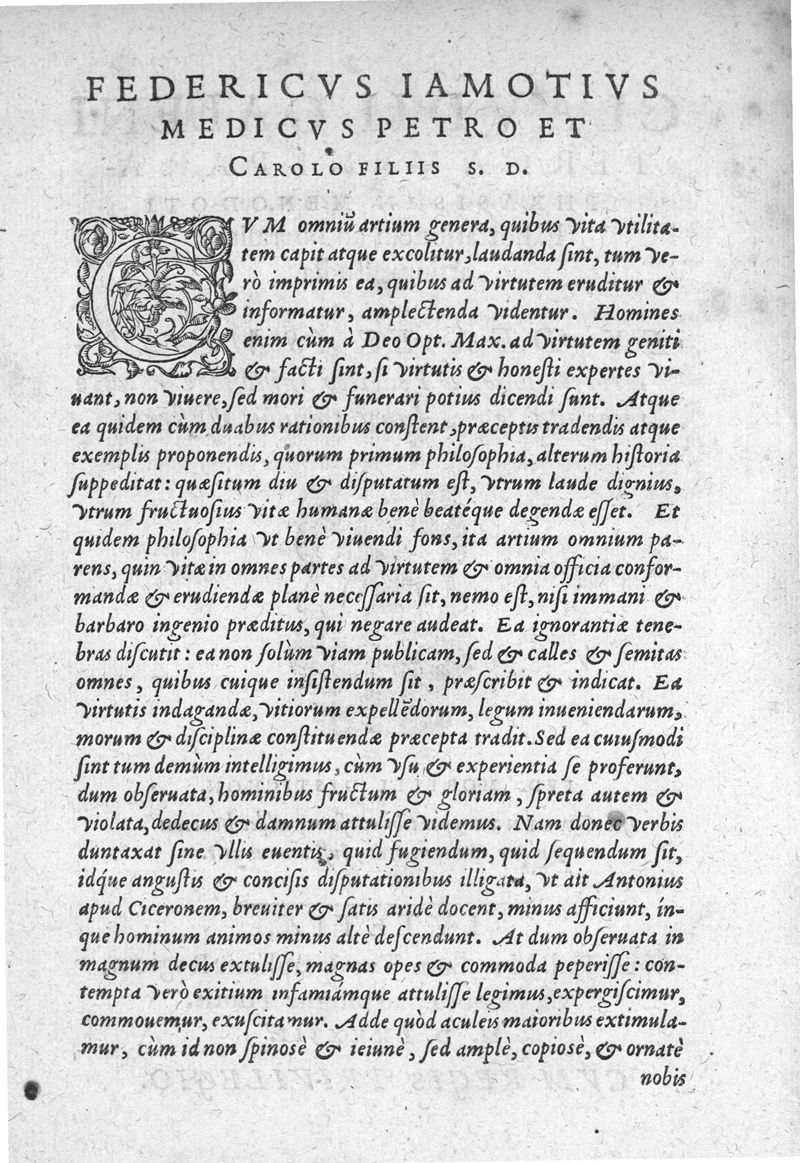 FEDERICVS IAMOTIVS
MEDICVS PETRO ET
CAROLO FILIIS S. D.
CVM omniū artium genera, quibus vita vtilita-
tem capit atque excolitur, laudanda sint, tum ve-
rò imprimis ea, quibus ad virtutem eruditur &
informatur, amplectenda videntur. Homines
enim cùm à Deo Opt. Max. ad virtutem geniti
& facti sint, si virtutis & honesti expertes vi-
uant, non viuere, sed mori & funerari potius dicendi sunt. Atque
ea quidem cùm duabus rationibus constent, præceptis tradendis atque
exemplis proponendis, quorum primum philosophia, alterum historia
suppeditat: quæsitum diu & disputatum est, vtrum laude dignius,
vtrum fructuosius vitæ humanæ benè beatéque degendæ esset. Et
quidem philosophia vt benè viuendi fons, ita artium omnium pa-
rens, quin vitæ in omnes partes ad virtutem & omnia officia confor-
mandæ & erudiendæ planè necessaria sit, nemo est, nisi immani &
barbaro ingenio præditus, qui negare audeat. Ea ignorantiæ tene-
bras discutit: ea non solùm viam publicam, sed & calles & semitas
omnes, quibus cuique insistendum sit, præscribit & indicat. Ea
virtutis indagandæ, vitiorum expellēdorum, legum inueniendarum,
morum & disciplinæ constituendæ præcepta tradit. Sed ea cuiusmodi
sint tum demùm intelligimus, cùm vsu & experientia se proferunt,
dum obseruata, hominibus fructum & gloriam, spreta autem &
violata, dedecus & damnum attulisse videmus. Nam donec verbis
duntaxat sine vllis euentis, quid fugiendum, quid sequendum sit,
idq́ue angustis & concisis disputationibus illigata, vt ait Antonius
apud Ciceronem, breuiter & satis aridè docent, minus afficiunt, ín-
que hominum animos minus altè descendunt. At dum obseruata in
magnum decus extulisse, magnas opes & commoda peperisse: con-
tempta verò exitium infamiámque attulisse legimus, expergiscimur,
commouemur, exuscitamur. Adde quòd aculeis maioribus extimula-
mur, cùm id non spinosè & ieiunè, sed amplè, copiosè, & ornatè
nobis